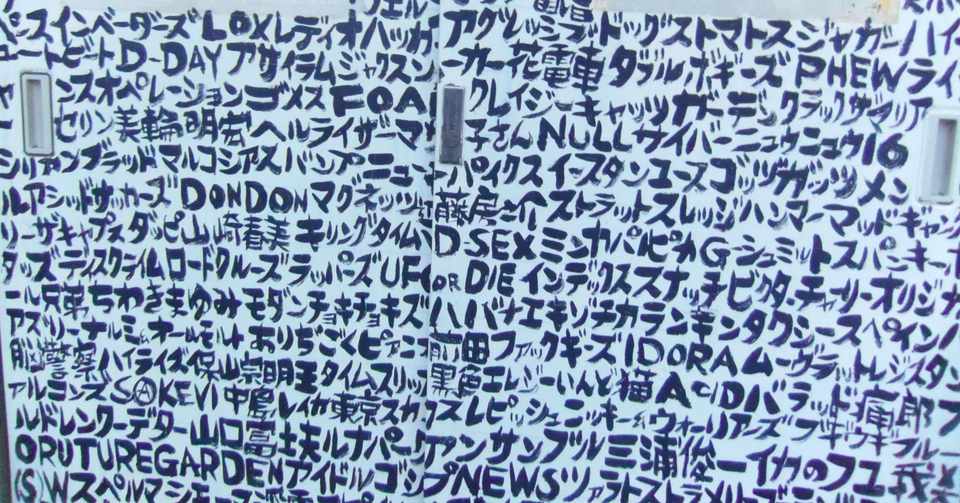 ースインベーダーズLOXレディオハッカー アグレッシブドッグストマトスジャガーハイ
ートビートD-DAYアサイラムジャクスン ーカー花電車タブルボギーズPHEWライ
ンスオペレーションゴメスFOA クレイジーキャッツガーデックラックサマリア
セリン美輪明宏ヘルライザーマ 子さんNULLサイバーニュウニュウ16
シリアンブラッドマルコシアスバンプニュー パイクスイースタンユースゴッツガッツメン
ルアシッドサッカーズDONDONマグネッツ 藤房さ介ストラットスレッジハンマーマッドキャ
リーザキャプスタッピ山崎春美キリングタイム D-SEXミンカパルピカGシュミットスパンキー
タッズディスクライムロードクルーズラッパーズUFO OR DIEインデックススナッチビクターチャーリーオリジナ
ール兄弟ちわきまゆみモダンチョキチョキズ ハバナエキゾチカランキンタクシースペイン
アズリーナルミィオールモートありちごくピアニ 前田ファックキーズIDORAムーヴラットレジスタン
脳警察ハイライズ保山宗明玉タイムスリッ 黒色エレジーいんと猫ACIDバラッド痺郎
ァルミンズSⒶKEVI中島レイカ東京スカ スレピッシュニッキームウォーリアーズ
ルドレンクーデター山口冨士夫ルナパー アンサンブル三浦俊一イカのフユ
ORUTUREGARDENアイドルゴシ プNEWS
(S)Wスペルマ